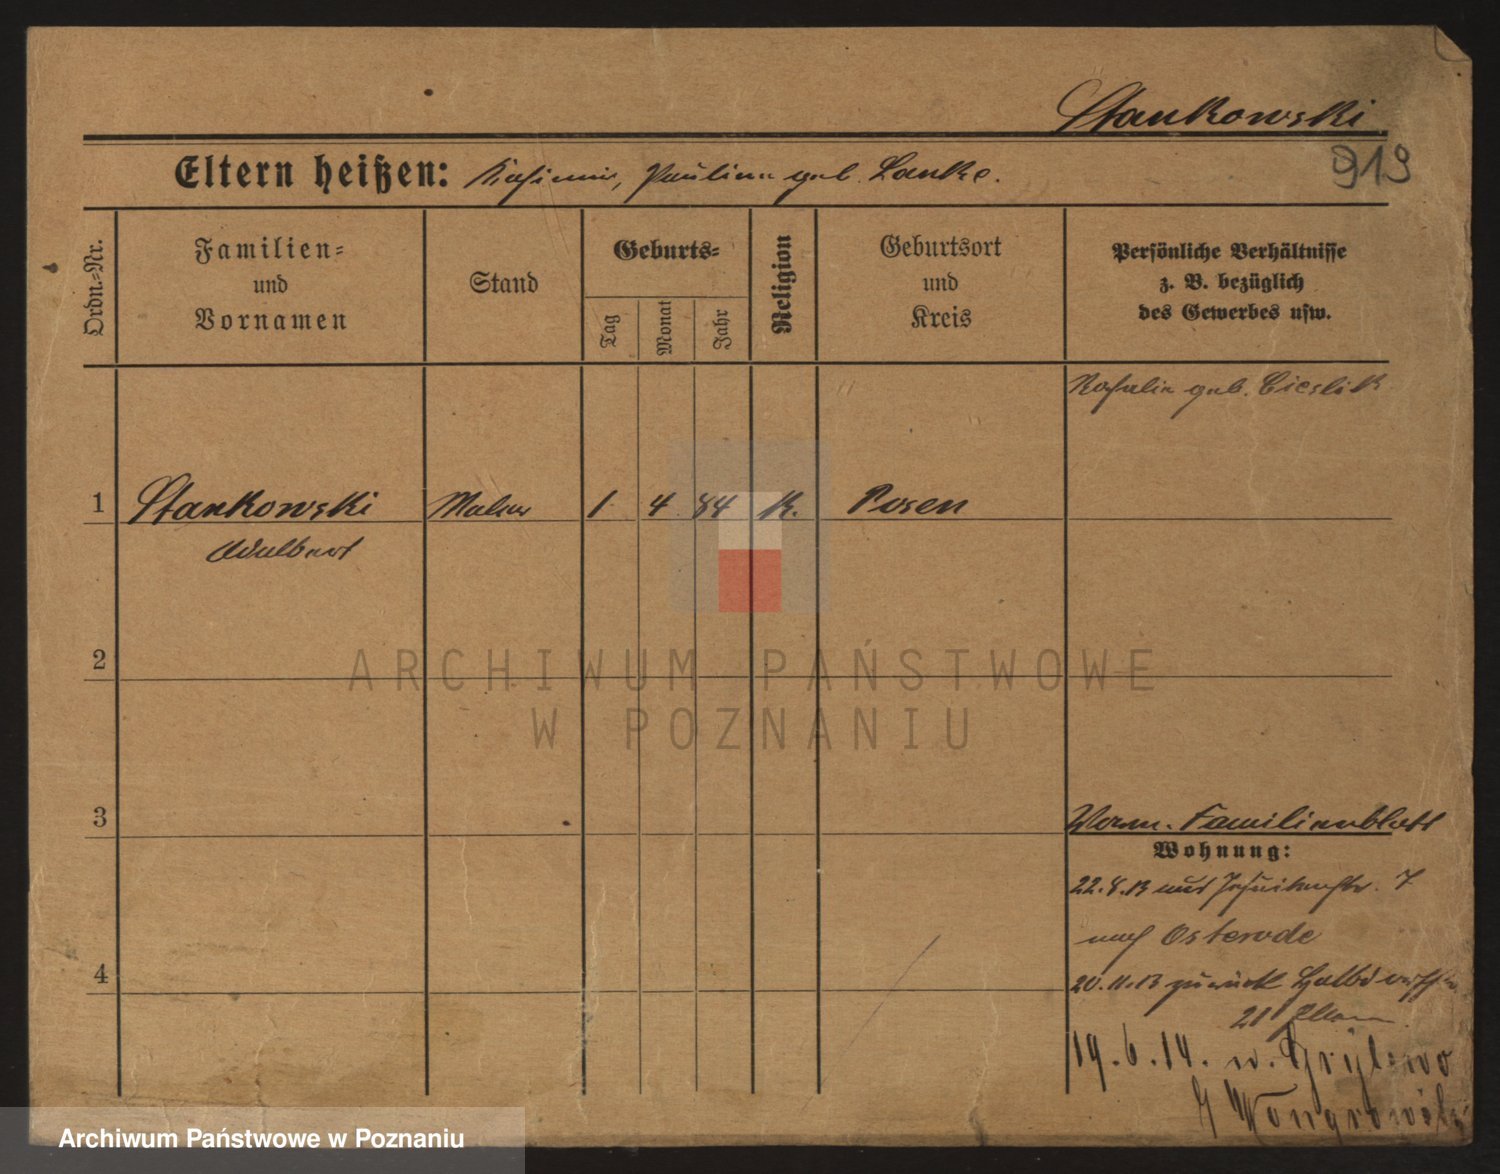 Stankowski
Eltern heißen: Kasimir, Paulina geb. Lanke.
919
Ordn.-Nr.
Familien-
und
Vornamen
Stand
Geburts-
Tag
Monat
Jahr
Religion
Geburtsort
und
Kreis
Persönliche Verhältnisse
z. B. bezüglich
des Gewerbes usw.
Rosalia geb. Cieslik
1 Stankowski Maler 1 4 84 K. Posen
Adalbert
2
ARCHIWUM PAŃSTWOWE
W POZNANIU
3
Familienblatt
Wohnung:
22.8.13 Jesuitenstr. 7
nach Osterode
4
20.11.13 zurück
21
19.6.14. n.
Archiwum Państwowe w Poznaniu